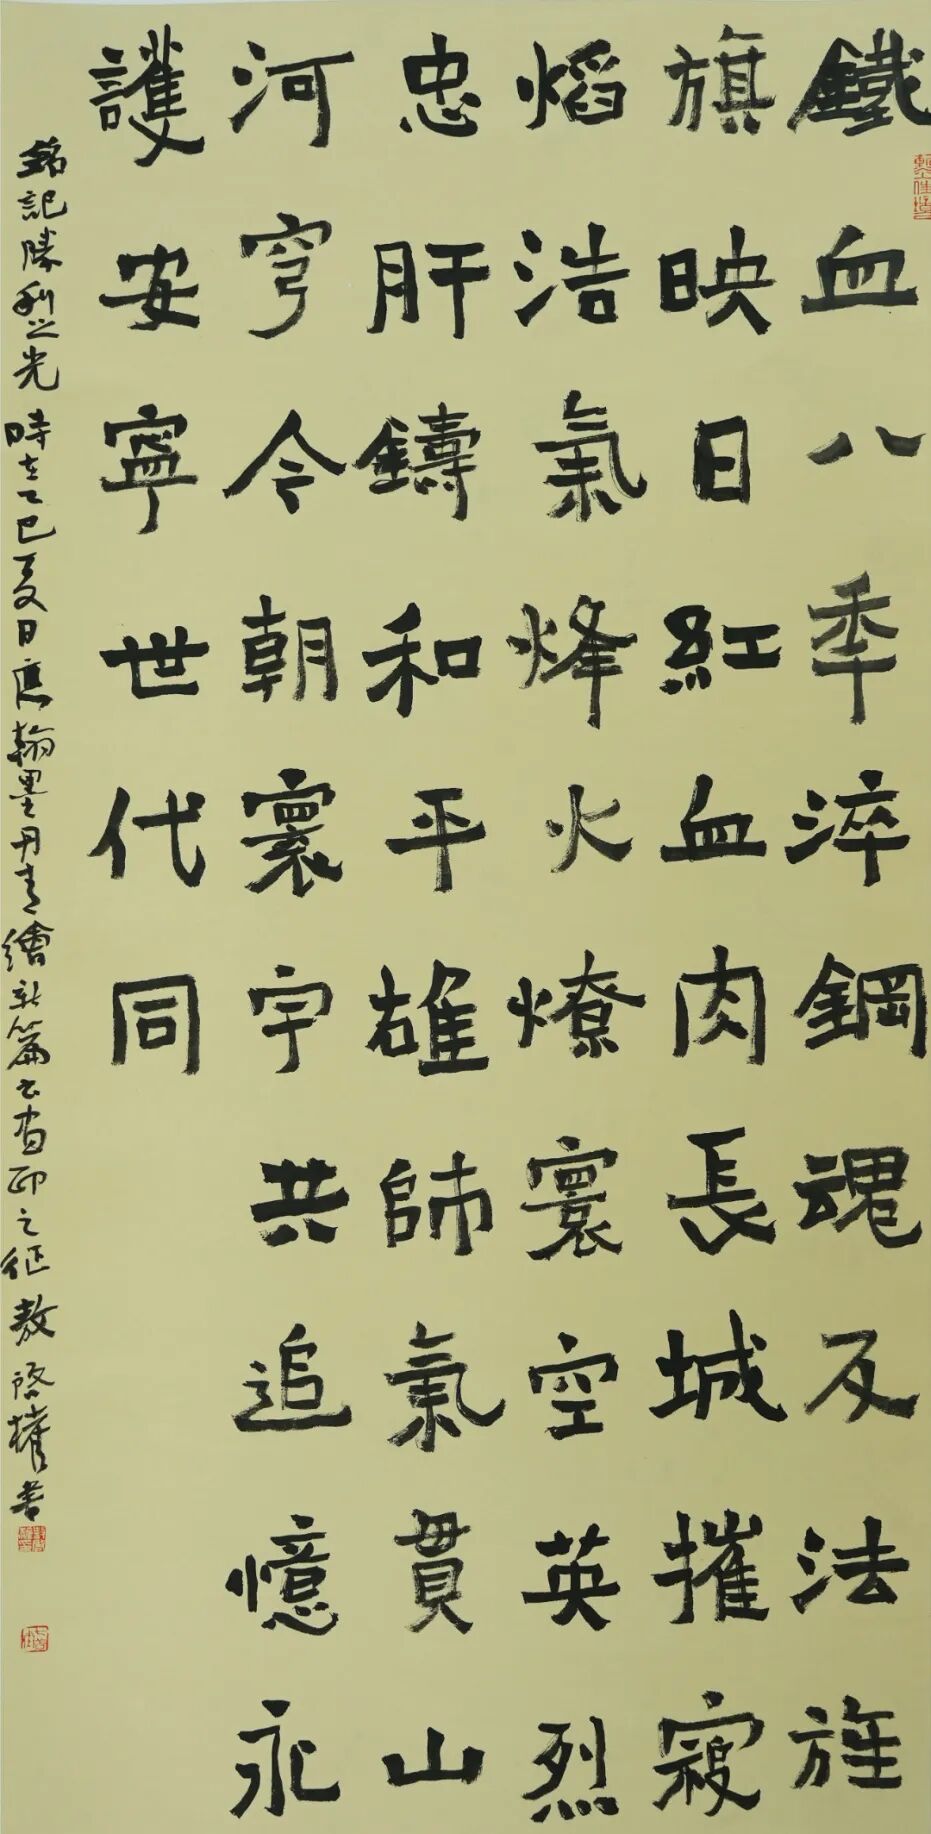 鐵血八年淬鋼魂反法旌
旗映日紅血肉長城摧寇
焰浩氣烽火燎寰空英烈
忠肝鑄和平雄師氣貫山
河穹今朝寰宇共追憶永
護安寧世代同
銘記勝利之光 時在乙巳夏日應翰墨丹青繪新篇書畫印之征 敖啓權書